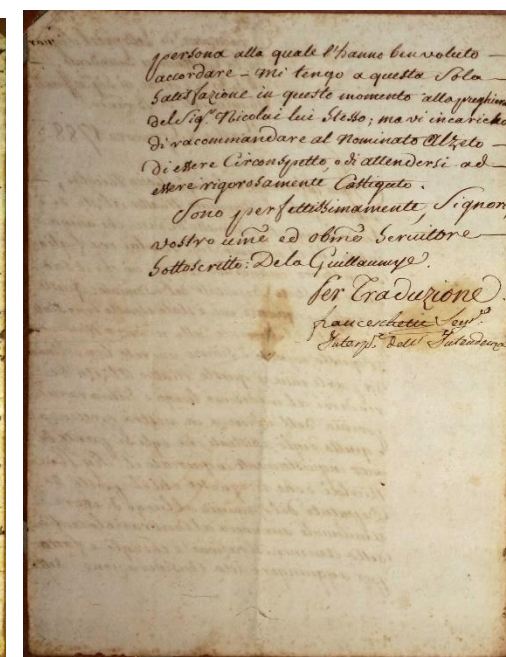 persona alla quale l'hanno ben voluto
accordare - mi tengo a questa Sola
Satisfazione in questo momento alla preghiera
dele Sig.r Nicolai lui Stesso; ma vi incarico
di raccomandare al Nominato Alzeto
di essere Circonspetto, o di attendersi ad
essere rigorosamente Castigato.
Sono perfettissimamente, Signore,
vostro ume ed obmo Servitore
Sottoscritto: Dela Guillaumye.
Per Traduzione.
franceschetti
Interp.e dell' Intendenza